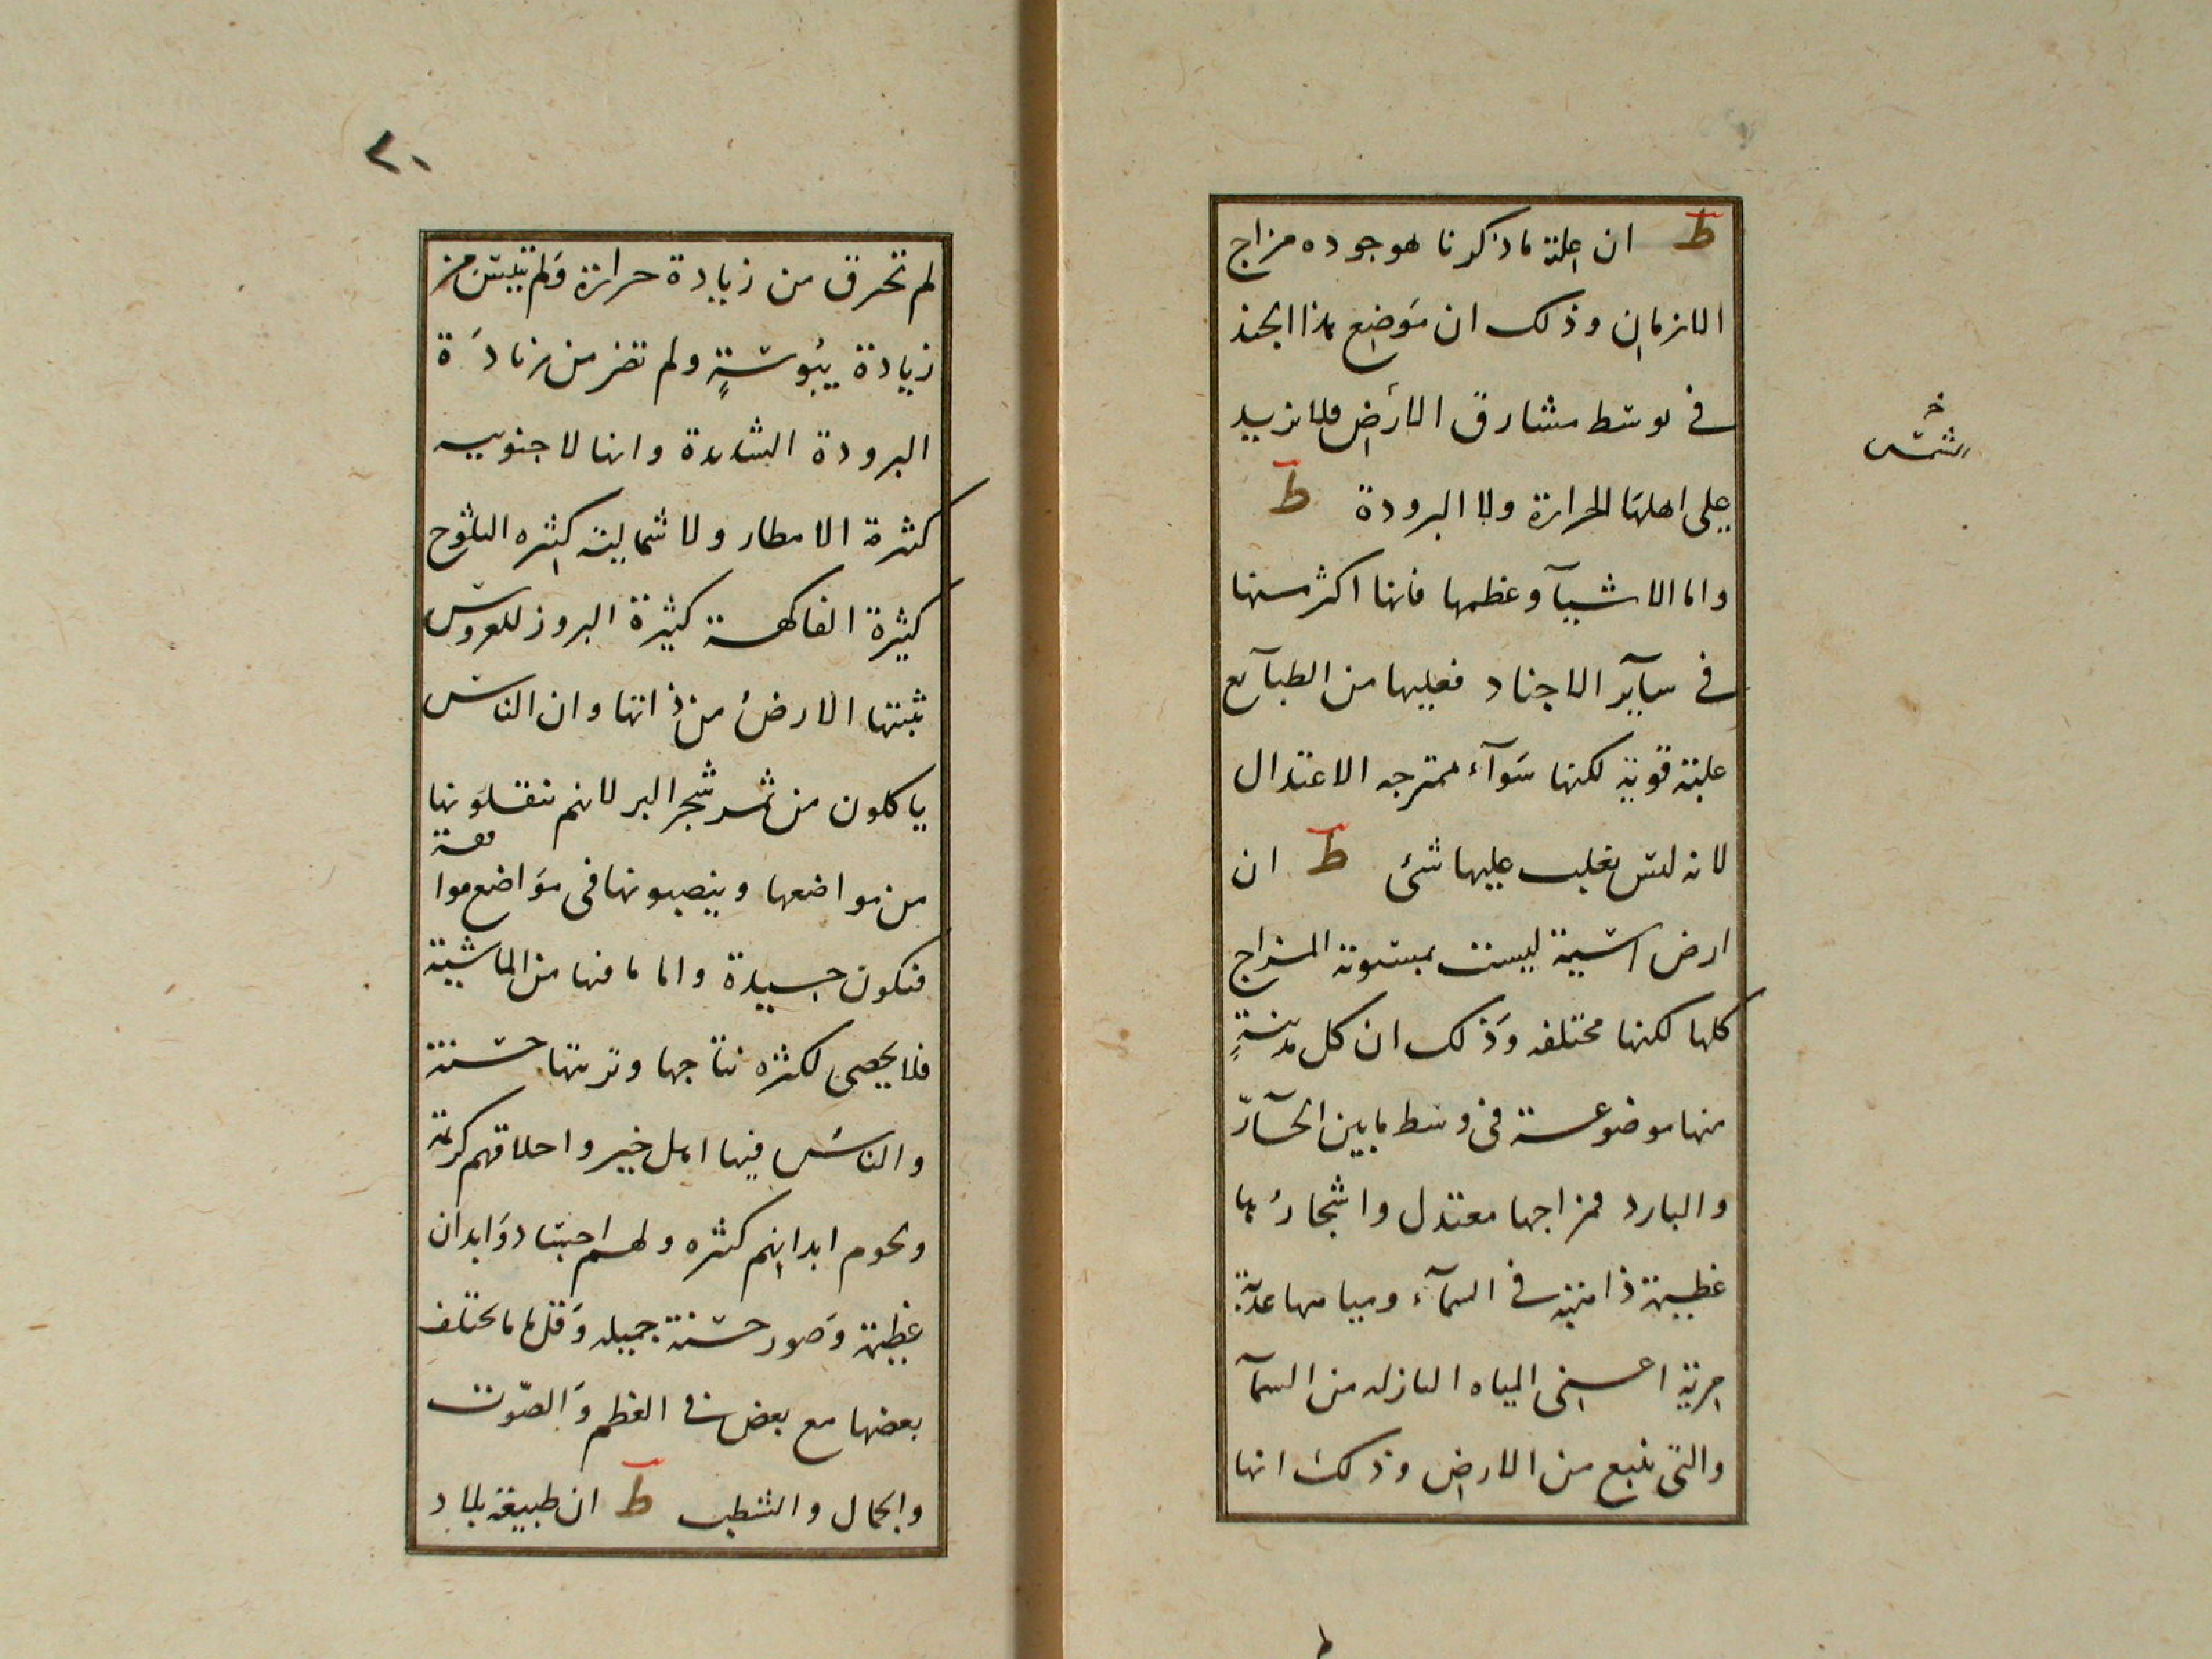 ط ان علة ماذكرنا هو جوده مزاج
الازمان وذلك ان مَوضع هذا الجند
في توسط مشارق الأرض فلا تزيد
على اهلها الحرارة ولا البرودة ط
واما الاشيآ وعظمها فانها اكثر منها
في سآير الاجناد فعليها من الطبآيع
علية قوية لكنها سَوآء ممترجه الاعتدال
لانه ليس يغلب عليها شئ ط ان
ارض اسية ليست بمستوية المزاج
كلها لكنها مختلفه وَذلك ان كل مدينةٍ
منها موضوعة في وسط مابين الحآرّ
والبارد فمزاجها معتدل واشجارُها
عظيمة ذاهبة في السمآء ومياهها عذبة
جرية اعني المياه النازله من السمآ
والتي تنبع من الارض وذلك انها
خ
الشمس
٢٠
لم تحرق من زيادة حرارة وَلم تيبس من
زيادة يبُوسةٍ ولم تضر من زيادَة
البرودة الشديدة وانها لا جنوبيه
كثرة الامطار ولا شمالية كثره الثلوج
كثيرة الفاكهة كثيرة البروز للعروس
تنبتها الارضُ من ذاتها وان الناس
ياكلون من ثمر شجر البر لانهم ينقلونها
من مواضعها وينصبونها في مَواضع موا
فقة
فتكون جيدة واما ما فيها من الماشية
فلا يحصى لكثره نتاجها وتربتها حسنة
والناس فيها اهل خير واخلاقهم كريمة
ولحوم ابدانهم كثره ولهم اجساد وَابدان
عظيمة وَصور حسَنة جميله وَقل ما مايختلف
بعضها مع بعض في العظم وَالصّوت
والجمال والشطب ط ان طبيعة بلاد